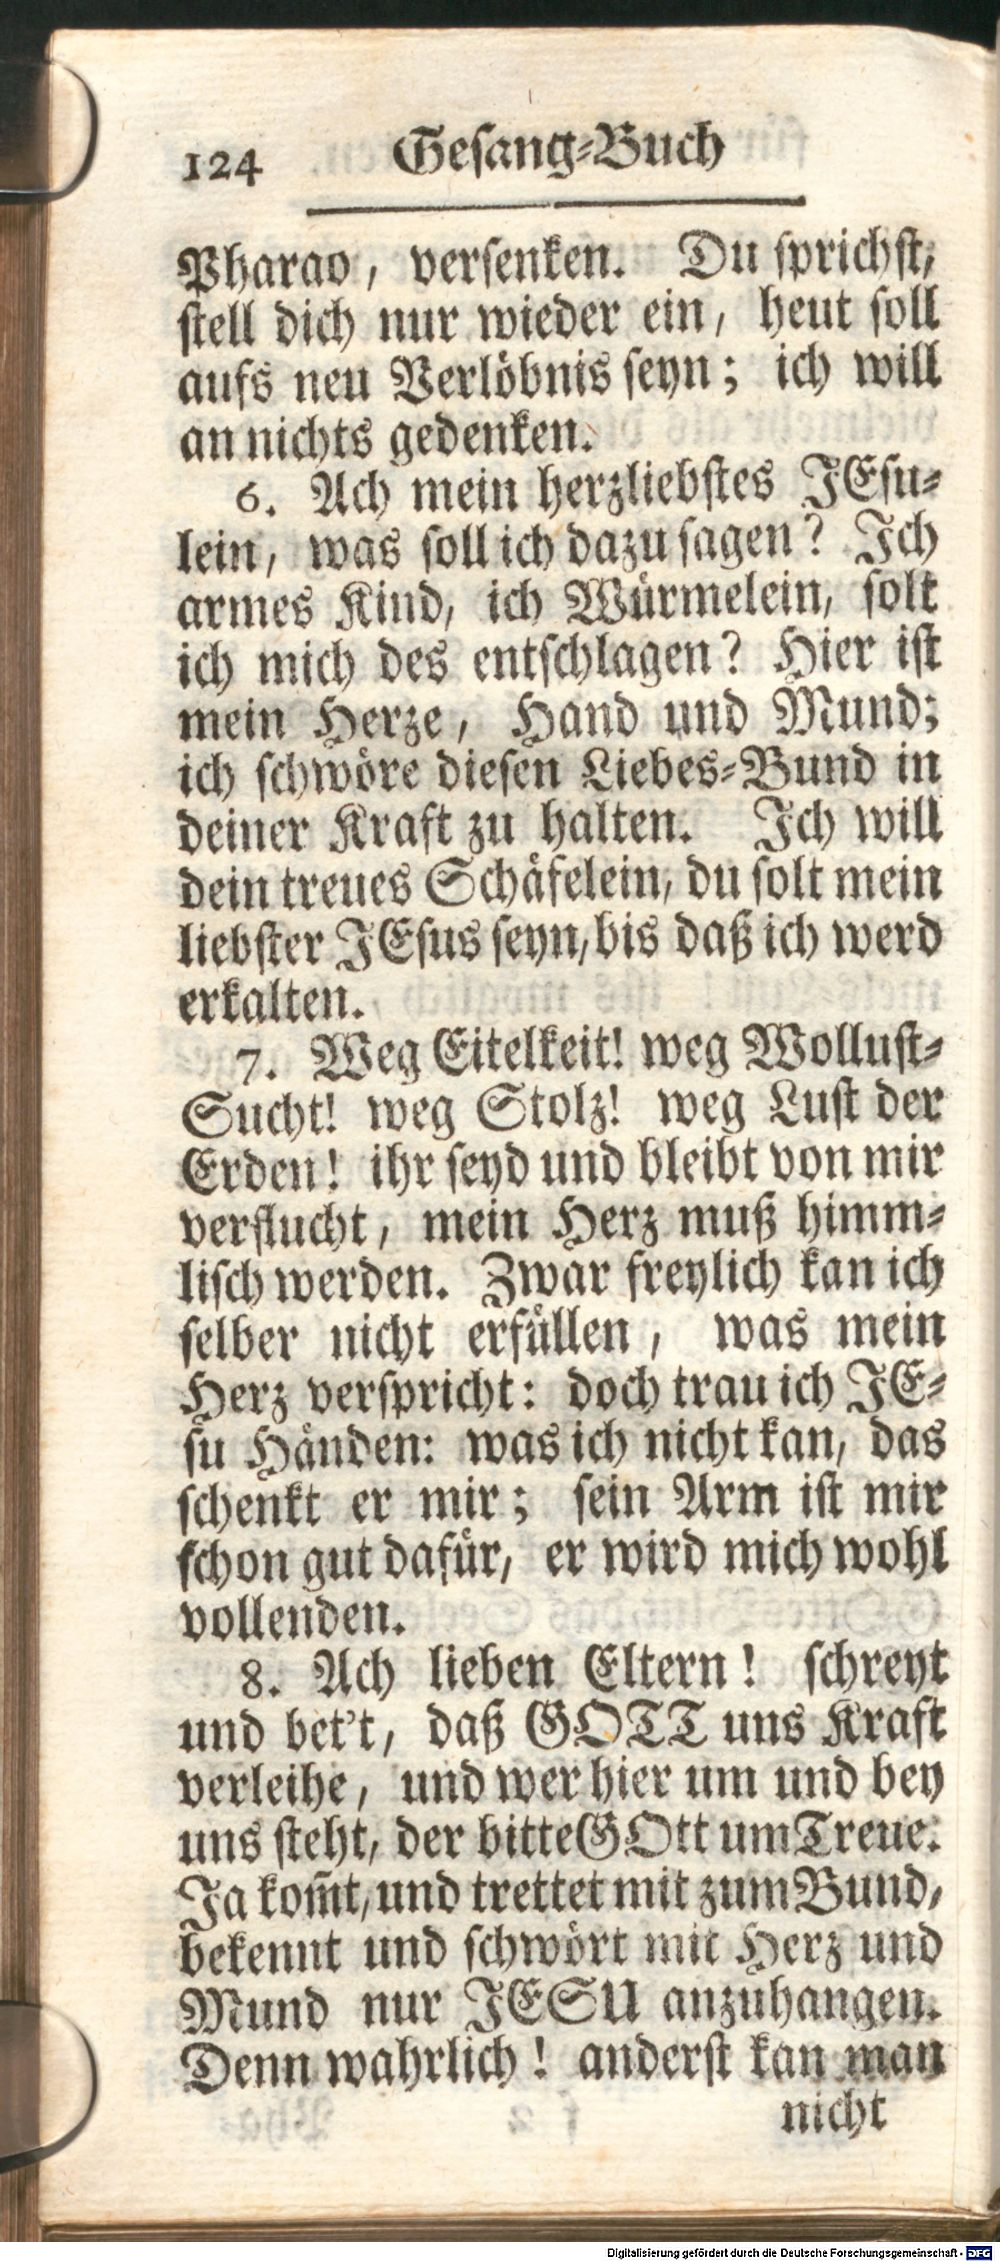 124 Gesang-Buch
Pharao, versenken. Du sprichst,
stell dich nur wieder ein, heut soll
aufs neu Verlöbnis seyn; ich will
an nichts gedenken.
6. Ach mein herzliebstes JEsu-
lein, was soll ich dazu sagen? Ich
armes Kind, ich Würmelein, solt
ich mich des entschlagen? Hier ist
mein Herze, Hand und Mund;
ich schwöre diesen Liebes-Bund in
deiner Kraft zu halten. Ich will
dein treues Schäfelein, du solt mein
liebster JEsus seyn, bis daß ich werd
erkalten.
7. Weg Eitelkeit! weg Wollust-
Sucht! weg Stolz! weg Lust der
Erden! ihr seyd und bleibt von mir
verflucht, mein Herz muß himm-
lisch werden. Zwar freylich kan ich
selber nicht erfüllen, was mein
Herz verspricht: doch trau ich JE-
su Händen: was ich nicht kan, das
schenkt er mir; sein Arm ist mir
schon gut dafür, er wird mich wohl
vollenden.
8. Ach lieben Eltern! schreyt
und bet't, daß GOTT uns Kraft
verleihe, und wer hier um und bey
uns steht, der bitte GOtt um Treue.
Ja kom̃t, und trettet mit zum Bund,
bekennt und schwört mit Herz und
Mund nur JESU anzuhangen.
Denn wahrlich! anderst kan man
nicht
Digitalisierung gefördert durch die Deutsche Forschungsgemeinschaft - DFG